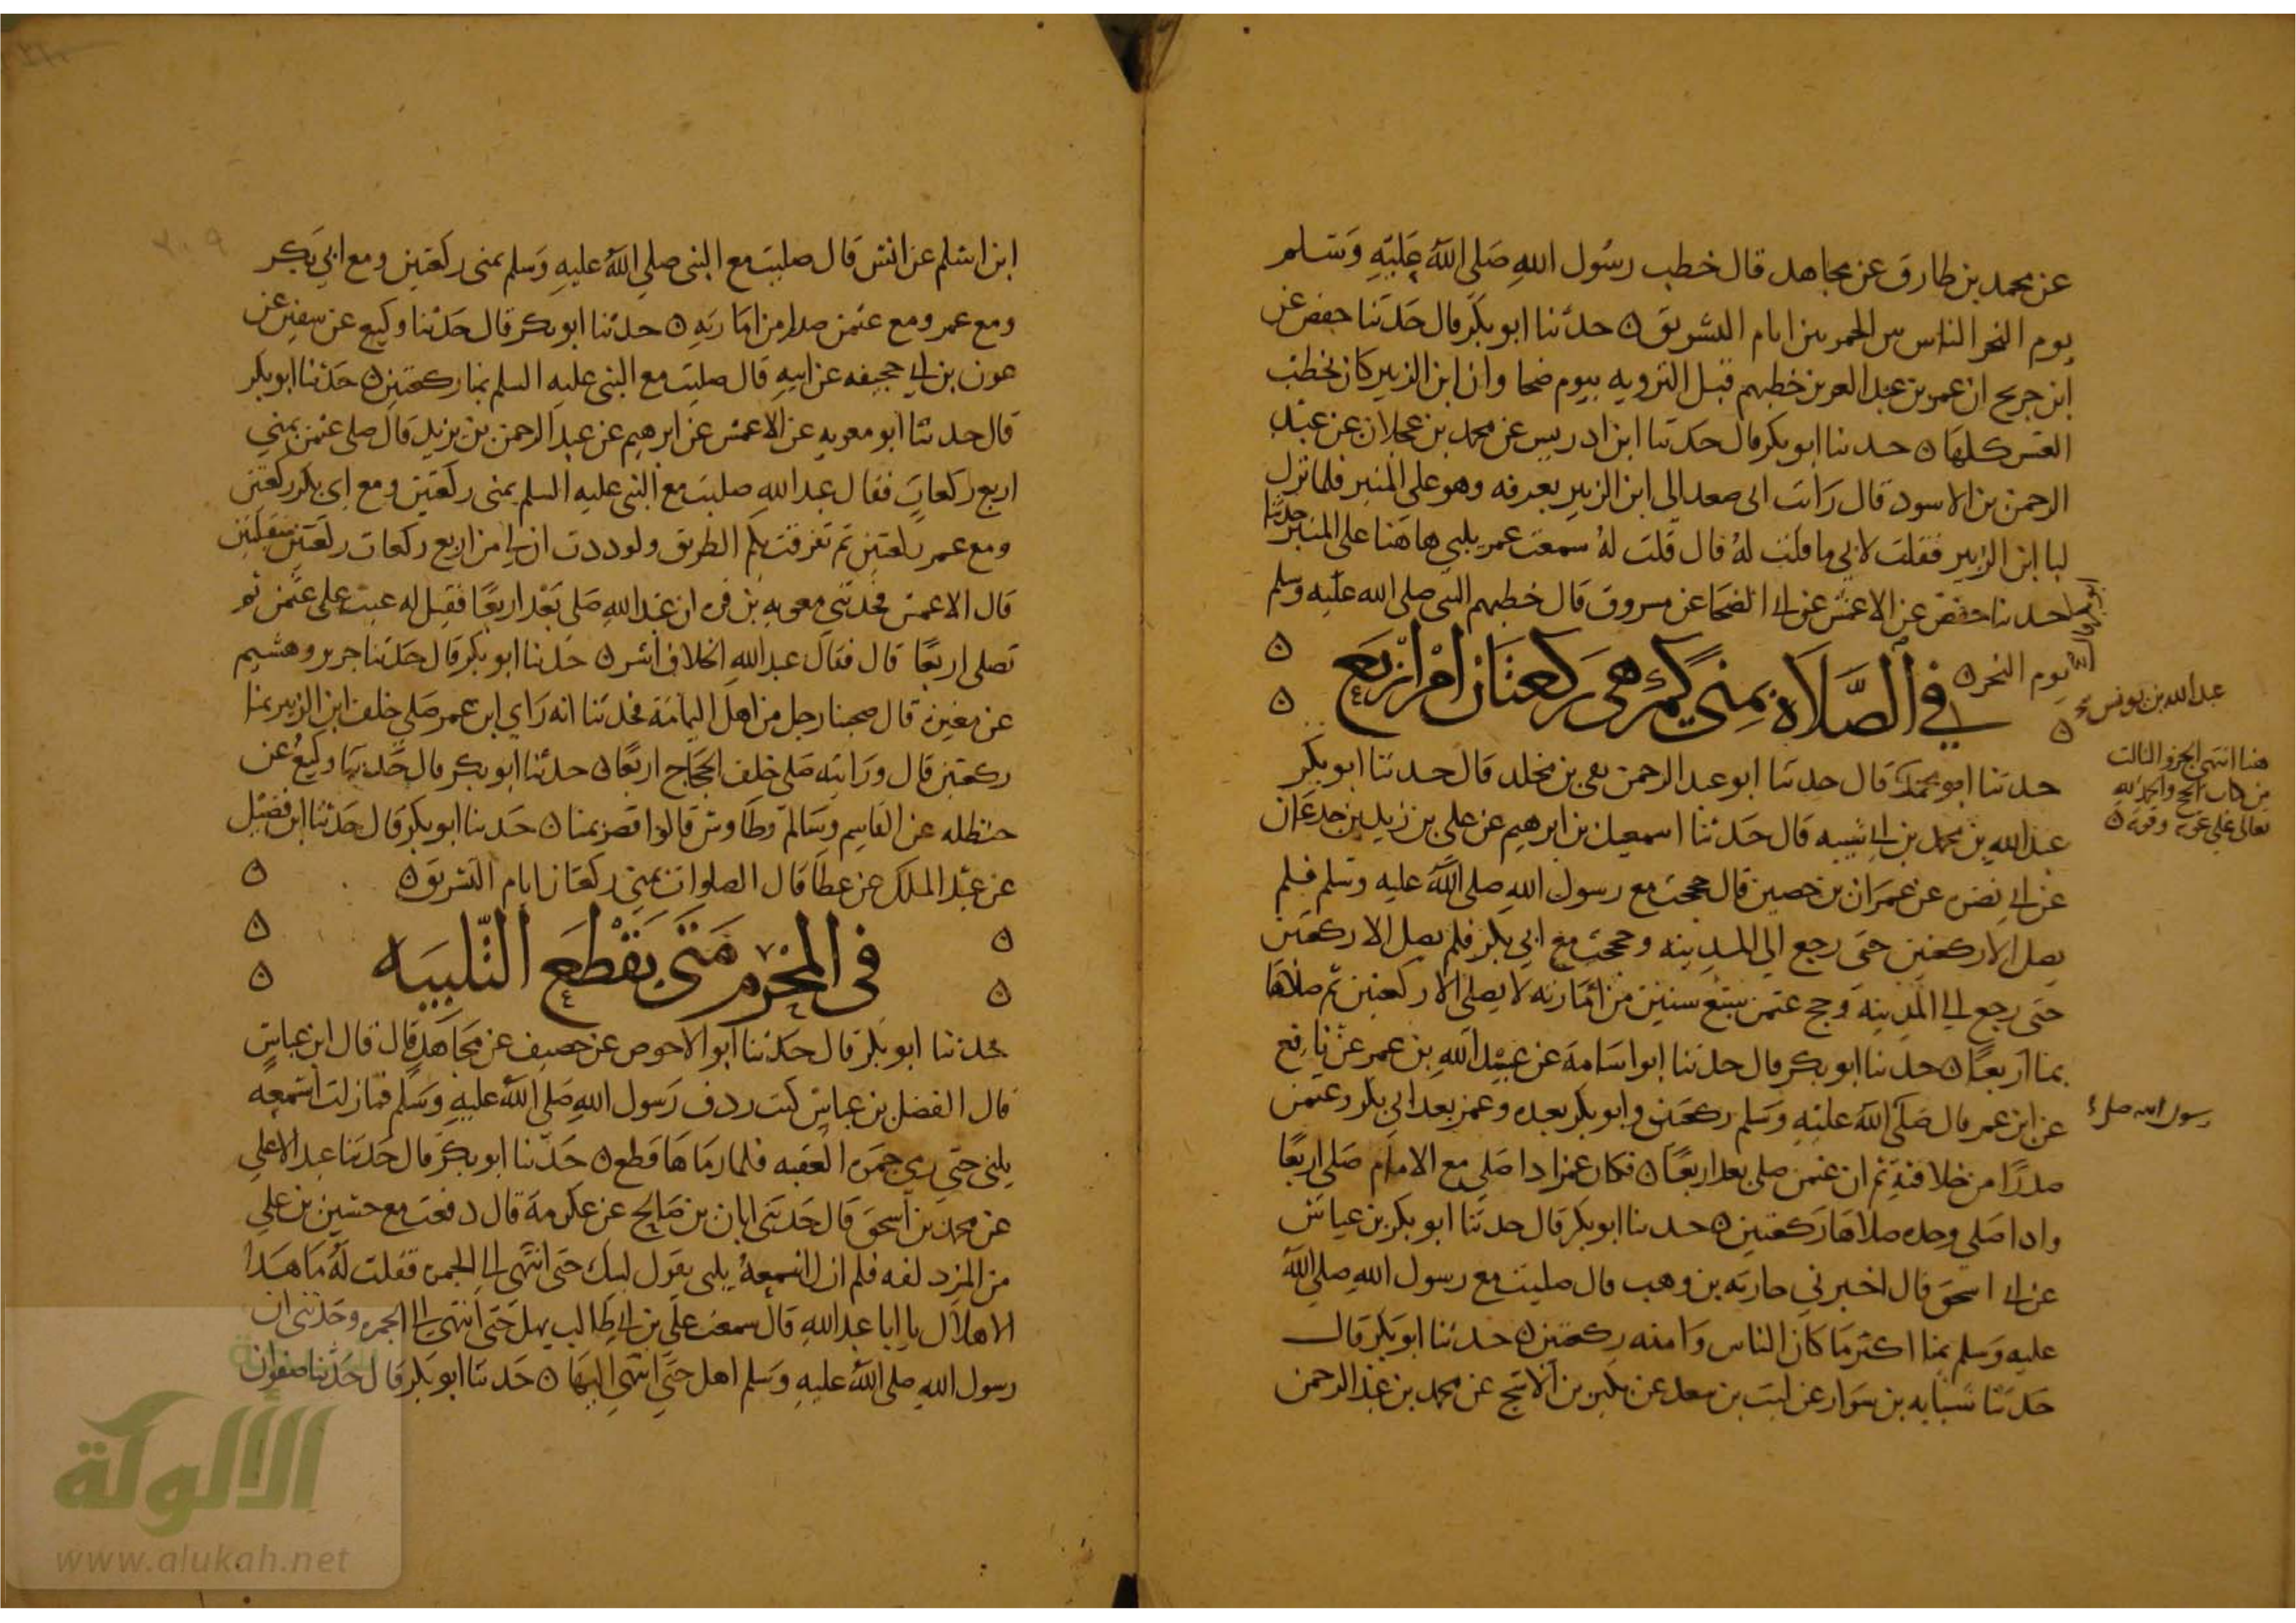 عن محمد بن طارق عن مجاهد قال خطب رسول الله صلى الله عليه وسلم
يوم النحر الناس بين الجمرتين ايام التشريق ه حدثنا ابو بكر قال حدثنا حفص عن
ابن جريج ان عمر بن عبد العزيز خطبهم قبل الترويه بيوم ضحا وان ابن الزبير كان يخطب
العشر كلها ه حدثنا ابو بكر قال حدثنا ابن ادريس عن محمد بن عجلان عن عبد
الرحمن بن الاسود قال رايت ابى صعد الى ابن الزبير بعرفه وهو على المنبر فلما نزل
لبا ابن الزبير فقلت لابي ما قلت له قال قلت له سمعت عمر يلبي ها هنا على المنبر حدثنا
ابو بكر قال
حدثنا حفص عن الاعمش عن ابي الضحا عن مسروق قال خطبهم النبى صلى الله عليه وسلم
يوم النحر ه
في الصلاة بمنى كم هي ركعتان ام اربع
عبد الله بن يونس
هنا انتهى الجزو الثالث
من كتاب الحج والحمد لله
تعالى على عونه وقوته ه
حدثنا ابو محمد قال حدثنا ابو عبد الرحمن بقى بن مخلد قال حدثنا ابو بكر
عبد الله بن محمد بن ابي شيبه قال حدثنا اسمعيل بن ابرهيم عن علي بن زيد بن جدعان
عن ابي نضره عن عمران بن حصين قال حججت مع رسول الله صلى الله عليه وسلم فلم
يصل الا ركعتين حتى رجع الى المدينه وحججت مع ابي بكر فلم يصل الا ركعتين
حتى رجع الي المدينة وحج عثمن سبع سنين من امارته لا يصلى الا ركعتين ثم صلاها
بمنا اربعا ه حدثنا ابو بكر قال حدثنا ابو اسامة عن عبيد الله بن عمر عن نافع
عن ابن عمر قال صلى الله عليه وسلم ركعتين وابو بكر بعده وعمر بعد ابي بكر وعثمن
رسول الله صلى
صدرا من خلافته ثم ان عثمن صلى بعد اربعا ه فكان عمر اذا صلى مع الامام صلى اربعا
واذا صلى وحده صلاها ركعتين ه حدثنا ابو بكر قال حدثنا ابو بكر بن عياش
عن ابي اسحق قال اخبرني حارثه بن وهب قال صليت مع رسول الله صلى الله
عليه وسلم بمنا اكثر ما كان الناس وامنه ركعتين ه حدثنا ابو بكر قال
حدثنا شبابه بن سوار عن ليث بن سعد عن بكير بن الاشج عن محمد بن عبد الرحمن
٢٠٩
ابن اسلم عن انس قال صليت مع النبى صلى الله عليه وسلم بمنى ركعتين ومع ابي بكر
ومع عمر ومع عثمن صدرا من امارته ه حدثنا ابو بكر قال حدثنا وكيع عن سفين عن
عون بن ابي جحيفه عن ابيه قال صليت مع النبى عليه السلم بمنا ركعتين ه حدثنا ابو بكر
قال حدثنا ابو معويه عن الاعمش عن ابرهيم عن عبد الرحمن بن يزيد قال صلى عثمن بمني
اربع ركعات فقال عبد الله صليت مع النبى عليه السلم بمنى ركعتين ومع ابى بكر ركعتين
ومع عمر ركعتين ثم تفرقت بكم الطريق ولوددت ان لى من اربع ركعات ركعتين متقبلتين
قال الاعمش فحدثني معويه بن قره ان عبد الله صلى بعد اربعا فقيل له عبت على عثمن ثم
تصلى اربعا قال فقال عبد الله الخلاف اشر ه حدثنا ابو بكر قال حدثنا جرير وهشيم
عن مغيره قال صحبنا رجل من اهل اليمامة فحدثنا انه راي ابن عمر صلى خلف ابن الزبير بمنا
ركعتين قال ورايته صلى خلف الحجاج اربعا ه حدثنا ابو بكر قال حدثنا وكيع عن
حنظله عن القاسم وسالم وطاوس قالوا قصر بمنا ه حدثنا ابو بكر قال حدثنا ابن فضيل
عن عبد الملك عن عطا قال الصلوات بمنى ركعتان ايام التشريق ه
في المحرم متى يقطع التلبيه
حدثنا ابو بكر قال حدثنا ابو الاحوص عن خصيف عن مجاهد قال قال ابن عباس
قال الفضل بن عباس كنت ردف رسول الله صلى الله عليه وسلم فما زلت اسمعه
يلبى حتى رمى جمرة العقبه فلما رماها قطع ه حدثنا ابو بكر قال حدثنا عبد الاعلى
عن محمد بن اسحق قال حدثنى ابان بن صالح عن عكرمة قال دفعت مع حسين بن علي
من المزدلفه فلم ازل اسمعه يلبى يقول لبيك حتى انتهى الي الجمره فقلت له ما هذا
الاهلال يا ابا عبد الله قال سمعت علي بن ابي طالب يهل حتى انتهى الى الجمره وحدثني ان
رسول الله صلى الله عليه وسلم اهل حتى انتهى اليها ه حدثنا ابو بكر قال حدثنا صفوان
الألوكة
www.alukah.net